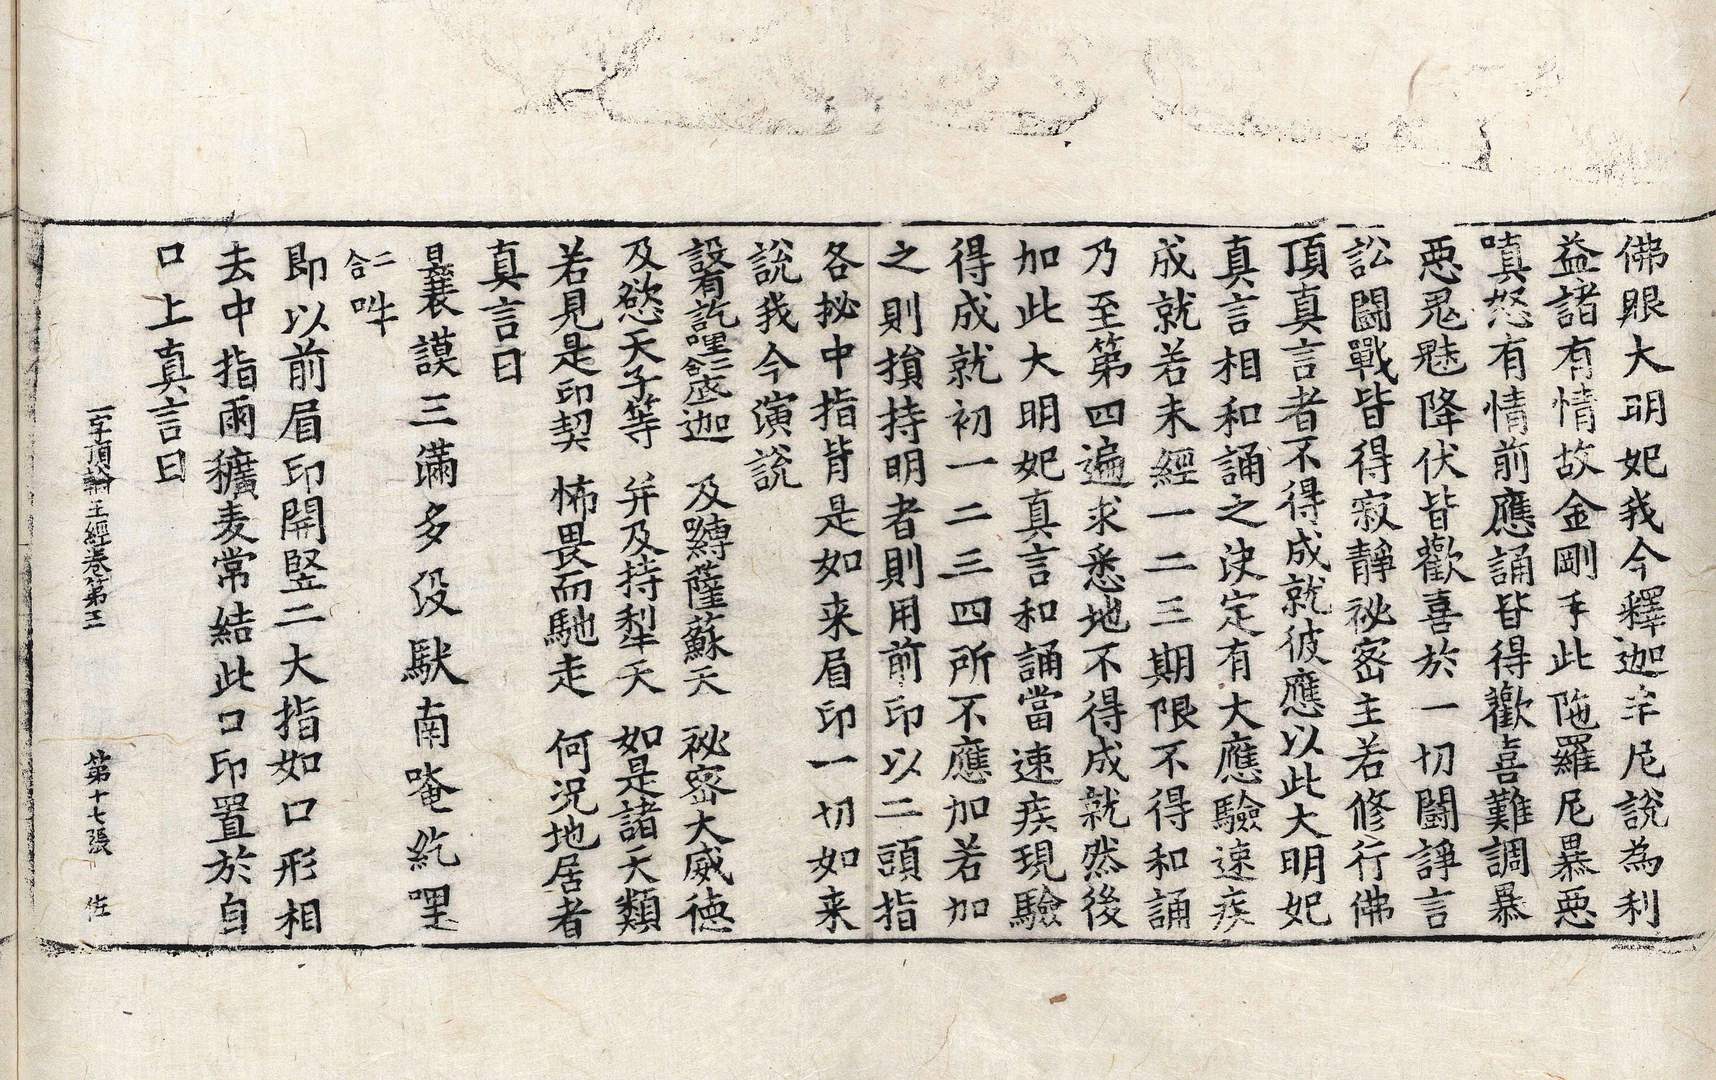 佛眼大明妃我今釋迦牟尼說為利
益諸有情故金剛手此陁羅尼暴惡
嗔怒有情前應誦皆得歡喜難調暴
惡鬼魅降伏皆歡喜於一切鬪諍言
訟鬪戰皆得寂靜祕密主若修行佛
頂真言者不得成就彼應以此大明妃
真言相和誦之決定有大應驗速疾
成就若未經一二三期限不得和誦
乃至第四遍求悉地不得成就然後
加此大明妃真言和誦當速疾現驗
得成就初一二三四所不應加若加
之則損持明者則用前印以二頭指
各拯中指背是如来眉印一切如来
說我今演說
設有訖哩二合底迦　及嚩薩蘇天　祕密大威徳
及慾天子等　并及持犁天　如是諸天類
若見是印契　怖畏而馳走　何況地居者
真言曰
曩謨三滿多没馱南唵紇哩
二合吽
即以前眉印開竪二大指如口形相
去中指兩穬麦常結此口印置於自
口上真言曰
一字頂輪王經卷第三　第十七張　佐